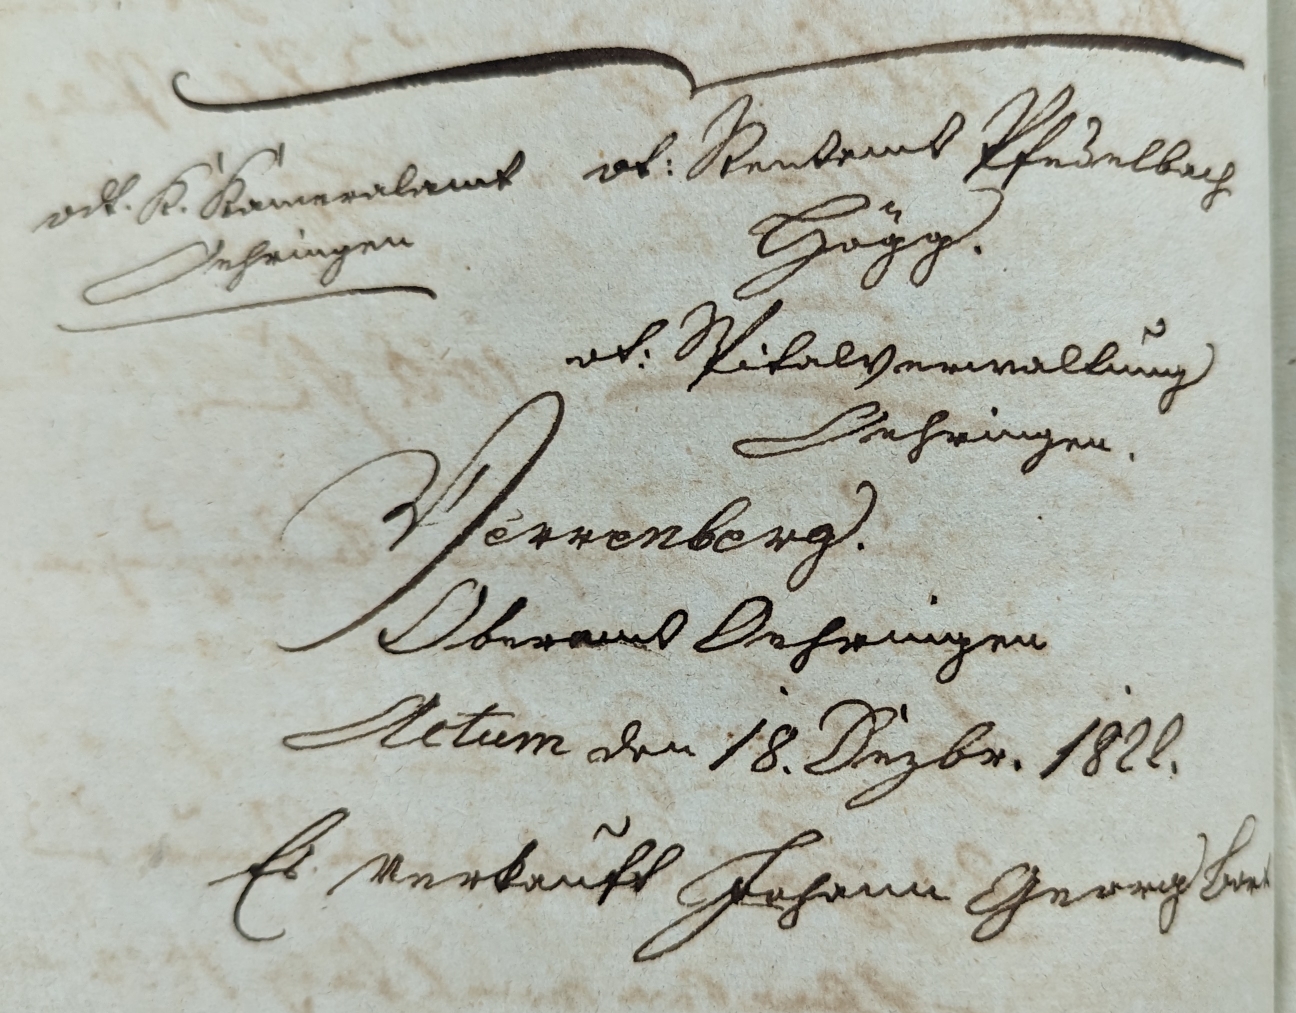 vdt. K. Kameralamt
Oehringen
vt: Rentamt Pfedelbach
Högg.
vt: Spitalverwaltung
Oehringen.
Verrenberg.
Oberamt Oehringen
Actum den 18. Dezbr. 1822.
Es verkauft Johann Georg